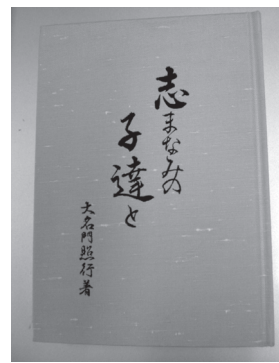 志まなみの
子達と
大名門照行著